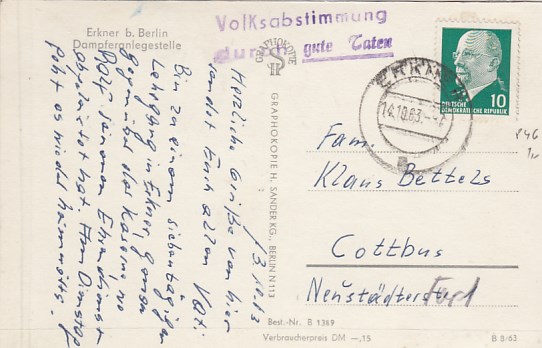 Erkner b. Berlin
Dampferanlegestelle
Volksabstimmung
durch gute Taten
ERKNER
14.10.63.
a
DEUTSCHE
DEMOKRATISCHE REPUBLIK
10
GRAPHOKOPIE
GRAPHOKOPIE H. SANDER KG., BERLIN N 113
13.10.63
Herzliche Grüße von hier
sendet Euch allen Vati.
Bin zu einem siebentägigen
Lehrgang in Erkner, genau
gegenüber der Kaserne, wo
seinen Ehrendienst
abgeleistet hat. Am Dienstag
geht es wieder heimwärts.
Fam.
Klaus Bettels
Cottbus
Neustädterstr.
Best.-Nr. B 1369
Verbraucherpreis DM -,15
B 8/63